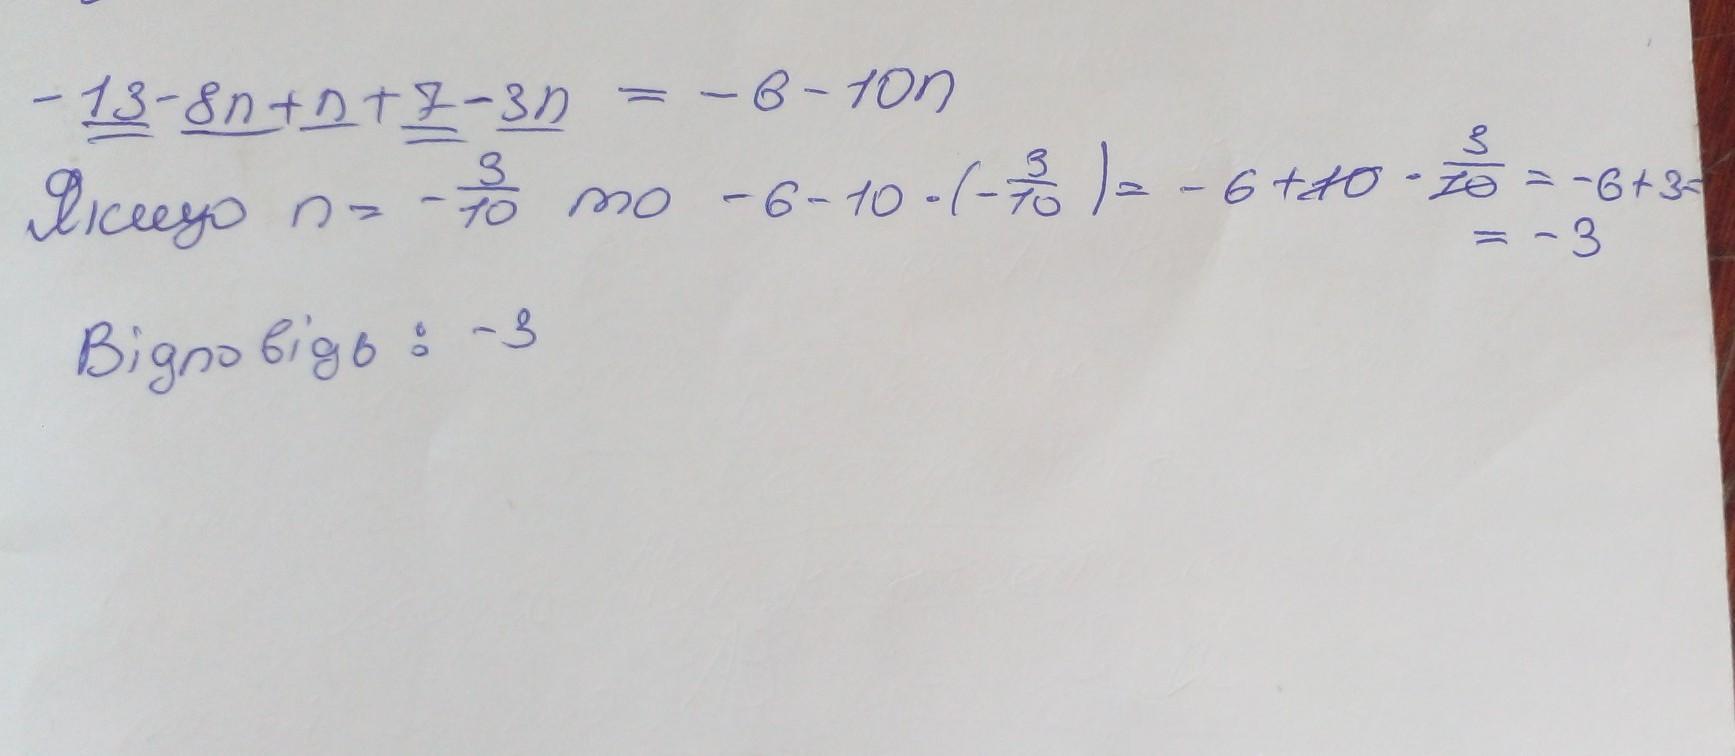 -13-8n+n+7-3n = -6-10n
Якщо n = -3/10 то -6-10·(-3/10) = -6+10·3/10 = -6+3=
= -3
Відповідь: -3